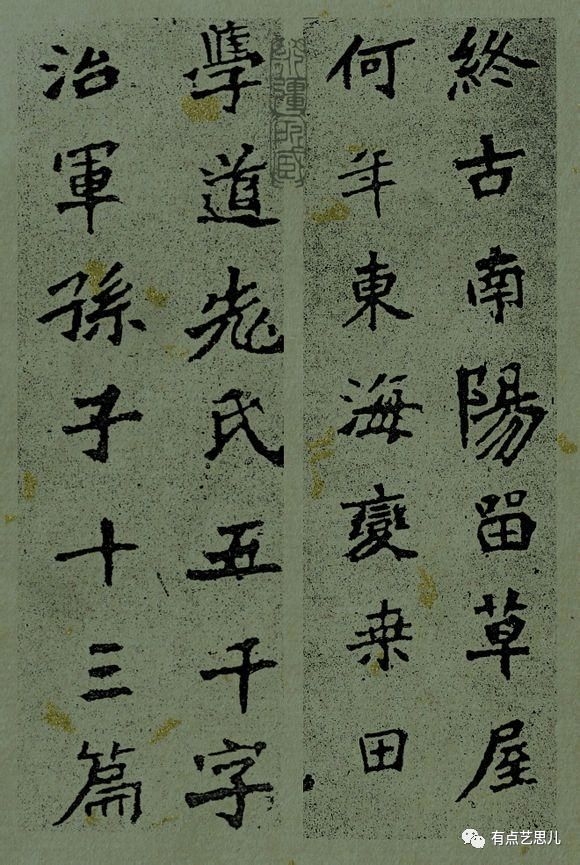 終古南陽留草屋
何年東海變桒田
學道老氏五千字
治軍孫子十三篇
有点艺思儿